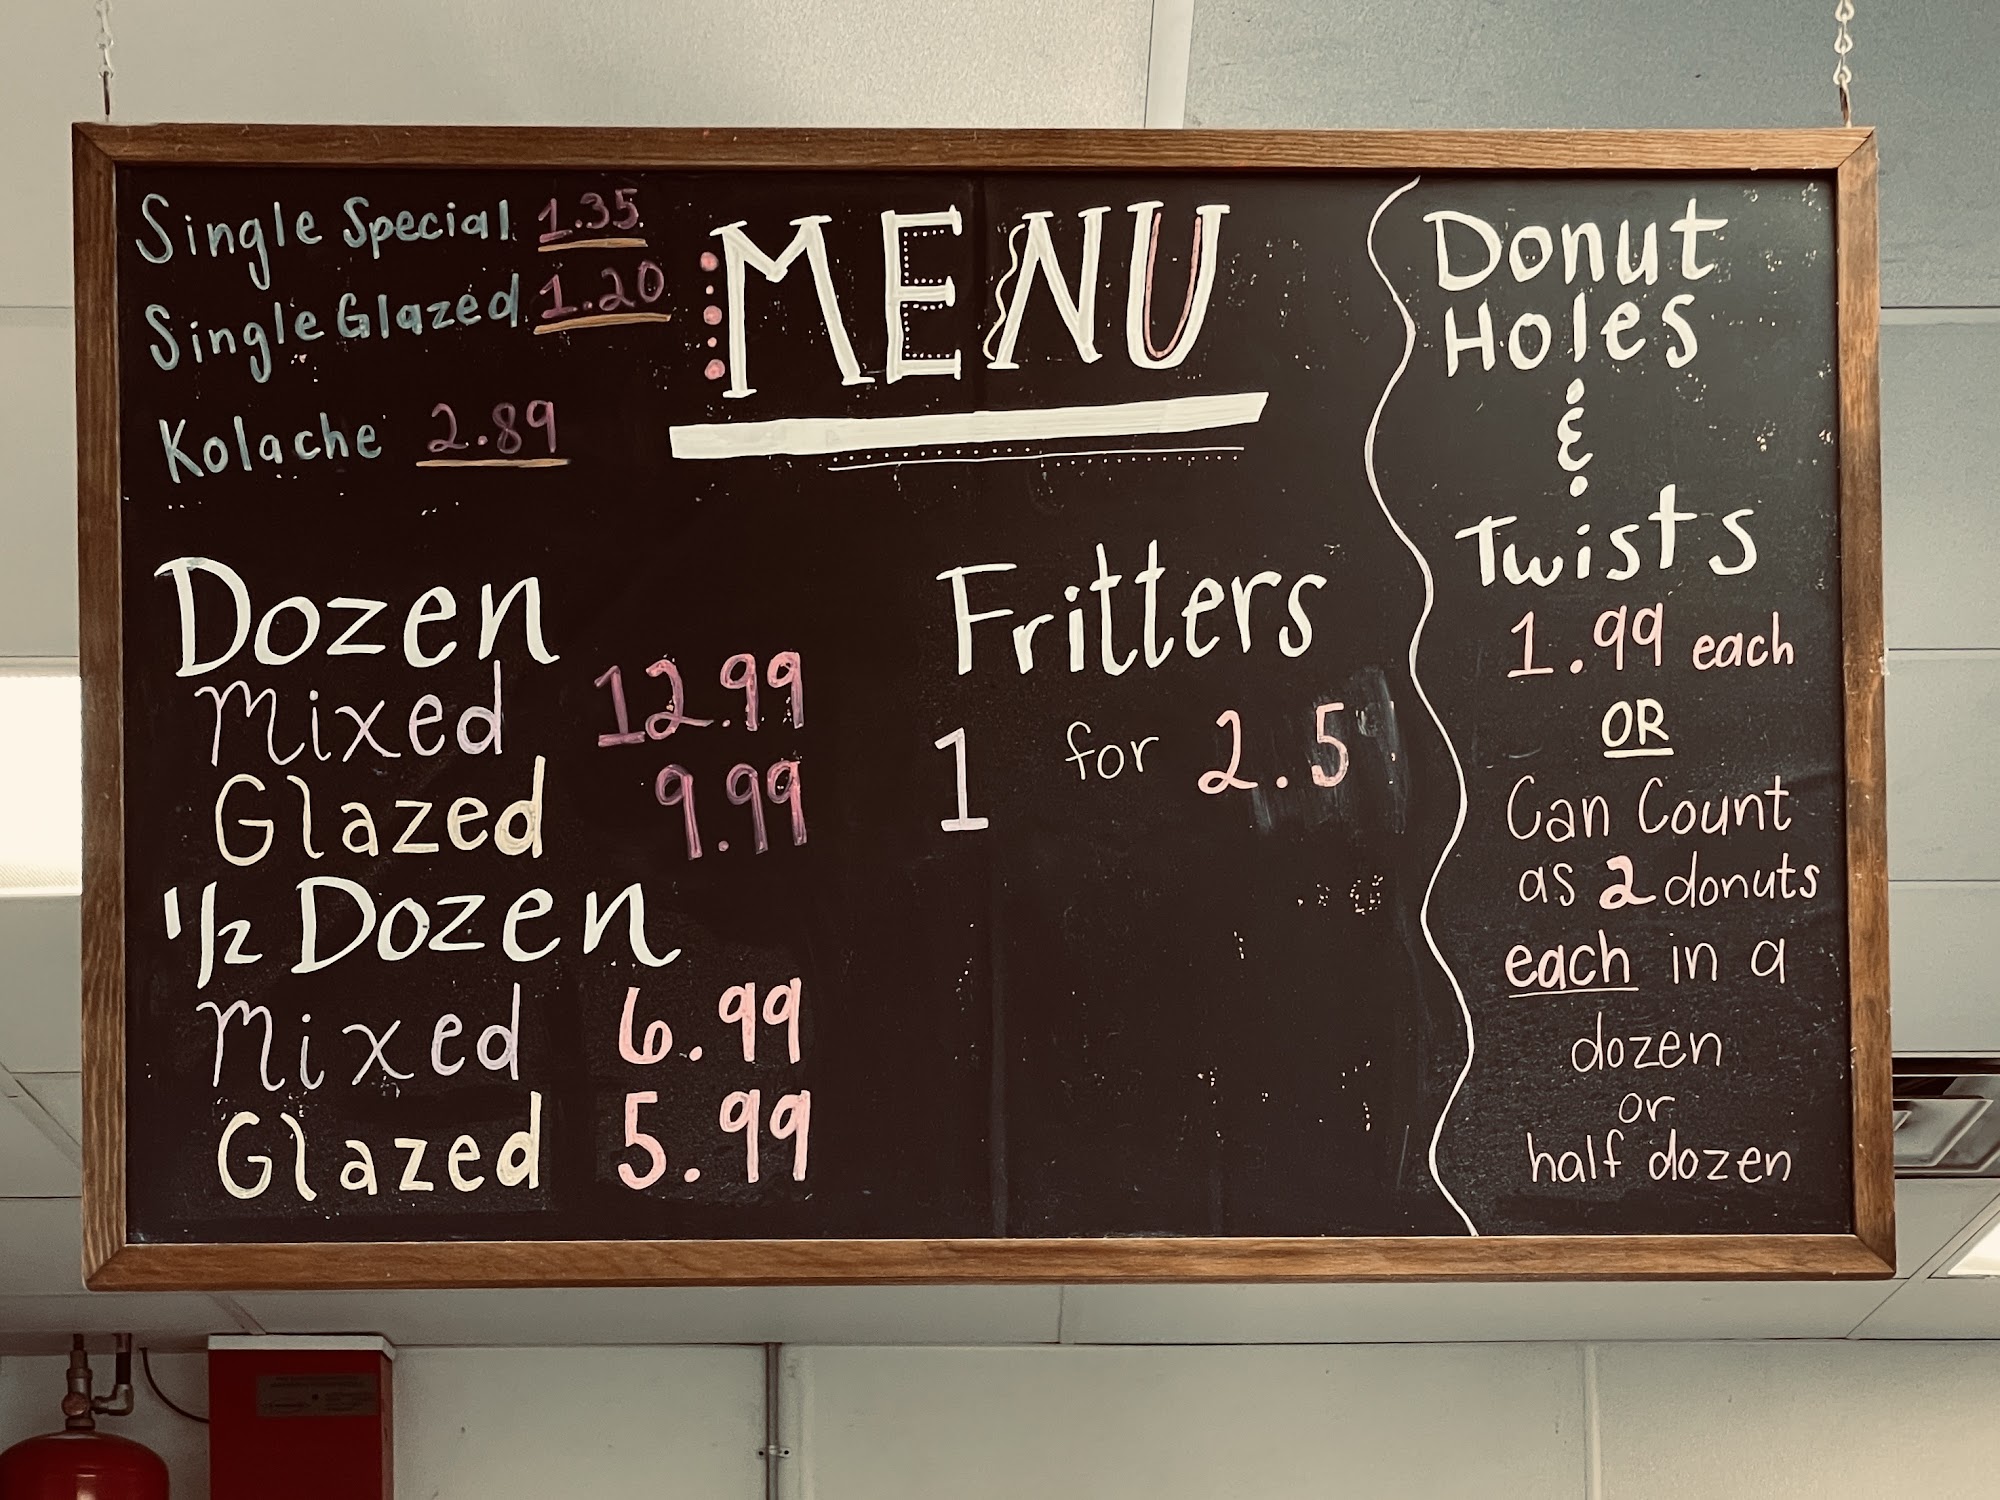 Single Special 1.35
Single Glazed 1.20
Kolache 2.89
MENU
Dozen
Mixed 12.99
Glazed 9.99
1/2 Dozen
Mixed 6.99
Glazed 5.99
Fritters
1 for 2.5
Donut
Holes
&
Twists
1.99 each
OR
Can Count
as 2 donuts
each in a
dozen
or
half dozen